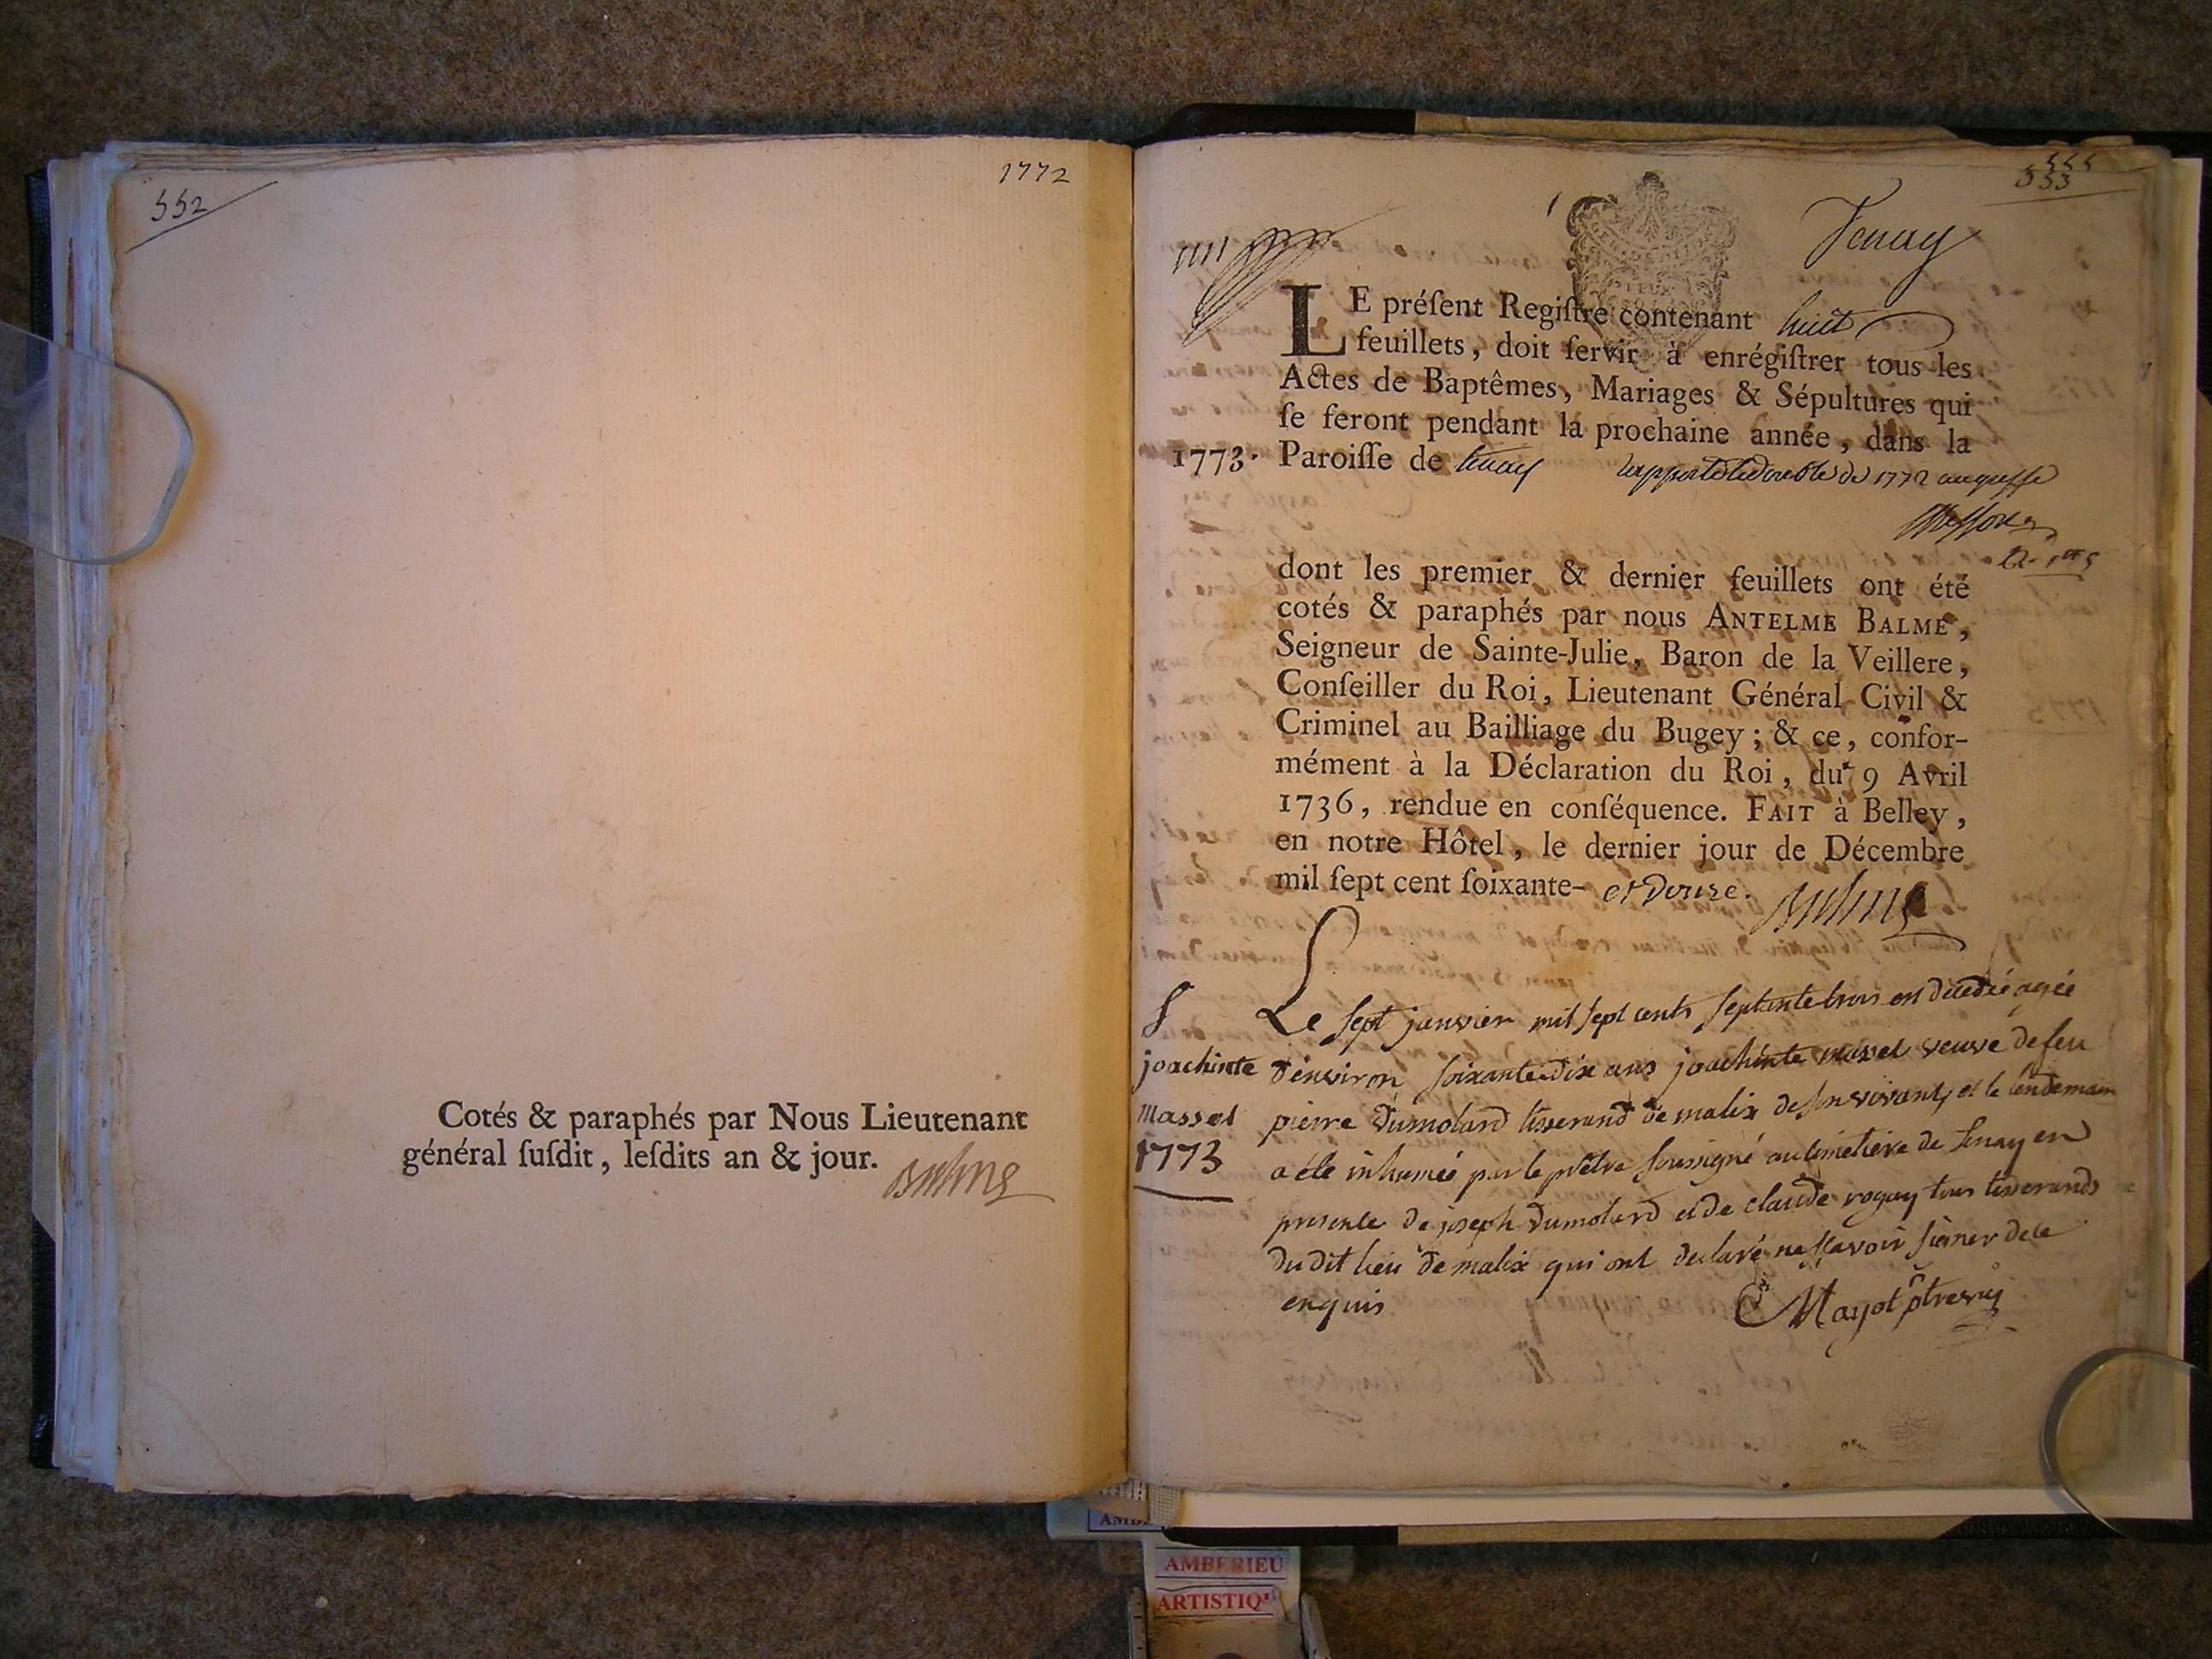 552
1772
Cotés & paraphés par Nous Lieutenant
général ſuſdit, leſdits an & jour.
Balme
555
553
Tenay
LE préſent Regiſtre contenant huit
feuillets, doit ſervir à enrégiſtrer tous les
Actes de Baptêmes, Mariages & Sépultures qui
ſe feront pendant la prochaine année, dans la
1773. Paroiſſe de tenay
rapporté le double de 1772 au greffe
dont les premier & dernier feuillets ont été
cotés & paraphés par nous ANTELME BALME,
Seigneur de Sainte-Julie, Baron de la Veillere,
Conſeiller du Roi, Lieutenant Général Civil &
Criminel au Bailliage du Bugey; & ce, confor-
mément à la Déclaration du Roi, du 9 Avril
1736, rendue en conſéquence. FAIT à Belley,
en notre Hôtel, le dernier jour de Décembre
mil ſept cent ſoixante- et Douze. Balme
S
joachinte
massel
1773
Le sept janvier mil sept cents septante trois est décédée agée
d'environ soixante dix ans joachinte massel veuve de feu
pierre Dumolard tisserand de malix de son vivant, et le lendemain
a été inhumée par le prêtre soussigné au cimetière de tenay en
presence de joseph Dumolard et de claude rogay tous tisserands
du dit lieu de malix qui ont déclaré ne sçavoir signer de ce
enquis
Mayot ptre vic
AMBERIEU
ARTISTIQ